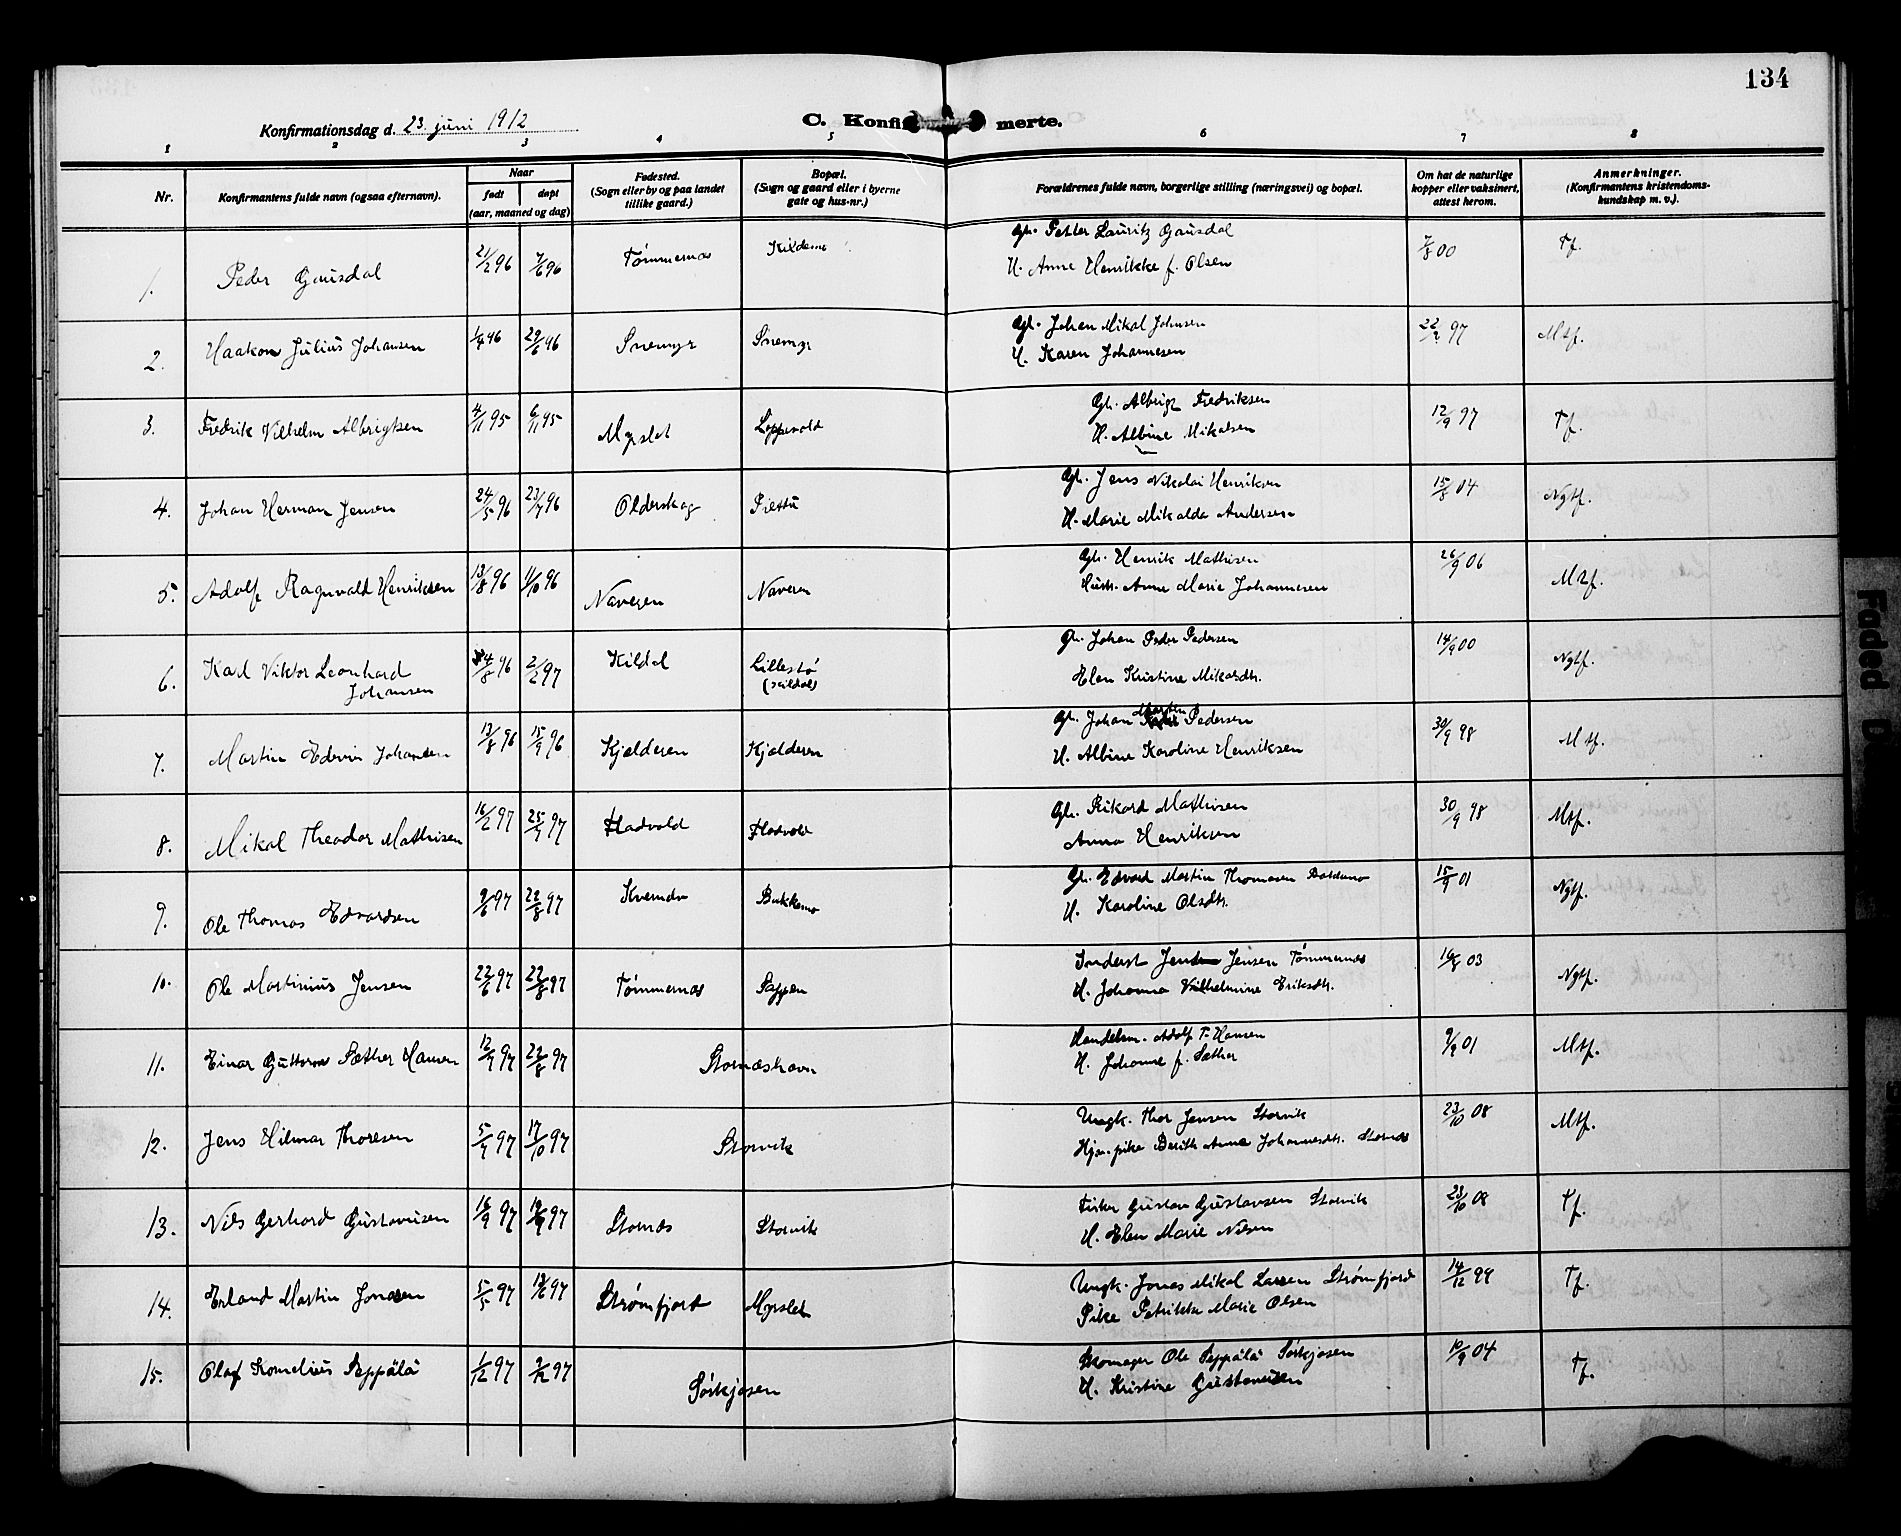 134
Konfirmationsdag d. 23. juni 1912
C. Konfi merte.
1 2 3 4 5 6 7 8
Nr. Konfirmantens fulde navn (ogsaa efternavn). Naar født døpt (aar, maaned og dag) Fødested. (Sogn eller by og paa landet tillike gaard.) Bopæl. (Sogn og gaard eller i byerne gate og hus-nr.) Forældrenes fulde navn, borgerlige stilling (næringsvei) og bopæl. Om hat de naturlige kopper eller vaksinert, attest herom. Anmerkninger. (Konfirmantens kristendomskundskap m. v.).
1. Peder Gausdal 21/2 96 7/6 96 Tømmernæs Kildemo Gh. Petter Lauritz Gausdal 7/8 00 Tf.
H. Anne Henrikke f. Olsen
2. Haakon Julius Johansen 1/4 96 29/6 96 Snemyr Snemyr Gh. Johan Mikal Johnsen 22/2 97 Mtf.
H. Karen Johannesen
3. Fredrik Vilhelm Albrigtsen 4/11 95 6/11 95 Myrslet Loppevold Gh. Albrigt Fredriksen 12/9 97 Tf.
H. Albine Mikalsen
4. Johan Herman Jensen 24/5 96 23/7 96 Olderskog Piettu Gh. Jens Nikolai Henriksen 15/8 04 Ngtf.
H. Marie Mikalda Andersen
5. Adolf Ragnvald Henriksen 13/8 96 11/10 96 Naveren Naveren Gh. Henrik Mathisen 26/9 06 Mtf.
Hustr. Anne Marie Johannesen
6. Karl Viktor Leonhard 4/8 96 2/2 97 Kildal Lillestø Gh. Johan Peder Pedersen 14/9 00 Ngtf.
Johansen (Kildal) Elen Kristine Mikalsdtr.
7. Martin Edvin Johansen 13/8 96 15/9 96 Kjelderen Kjelderen Gh. Johan Morten Pedersen 30/9 98 Mtf.
H. Albine Karoline Henriksen
8. Mikal Theodor Mathisen 16/2 97 25/7 97 Fladvold Fladvold Gh. Rikard Mathisen 30/9 98 Mtf.
Anna Henriksen
9. Ole Thomas Edvardsen 9/6 97 22/8 97 Kvemdn Bukkemo Gh. Edvard Martin Thomasen 15/9 01 Ngtf.
H. Karoline Olsdtr.
10. Ole Martinius Jensen 22/6 97 22/8 97 Tømmernæs Sappen Inderst Jens Jensen Tømmernæs 16/8 03 Ngtf.
H. Johanna Vilhelmine Eriksdtr.
11. Einar Guttorm Sæther Hansen 12/7 97 22/8 97 Storneshavn Handelsm. Adolf T. Hansen 9/9 01 Mtf.
H. Johanne f. Sæther
12. Jens Hilmar Thoresen 5/7 97 17/10 97 Storvik Ungk. Thor Jensen Storvik 23/10 08 Mtf.
Hjm. pike Berith Anna Johannesdtr. Stornæs
13. Nils Gerhard Gustavsen 16/9 97 97 Stornæs Storvik Fisker Gustav Gustavsen Storvik 23/10 08 Tf.
H. Elen Marie Nilsen
14. Erland Martin Jonasen 5/5 97 13/6 97 Strømfjord Myrslet Ungk. Jonas Mikal Larsen Strømfjord 14/12 99 Tf.
Pike Petrikke Marie Olsen
15. Olaf Kornelius Seppälä 1/12 97 2/12 97 Sørkjosen Skomager Ole Seppälä Sørkjosen 10/9 04 Tf.
H. Kristine Gustavsen
Faded